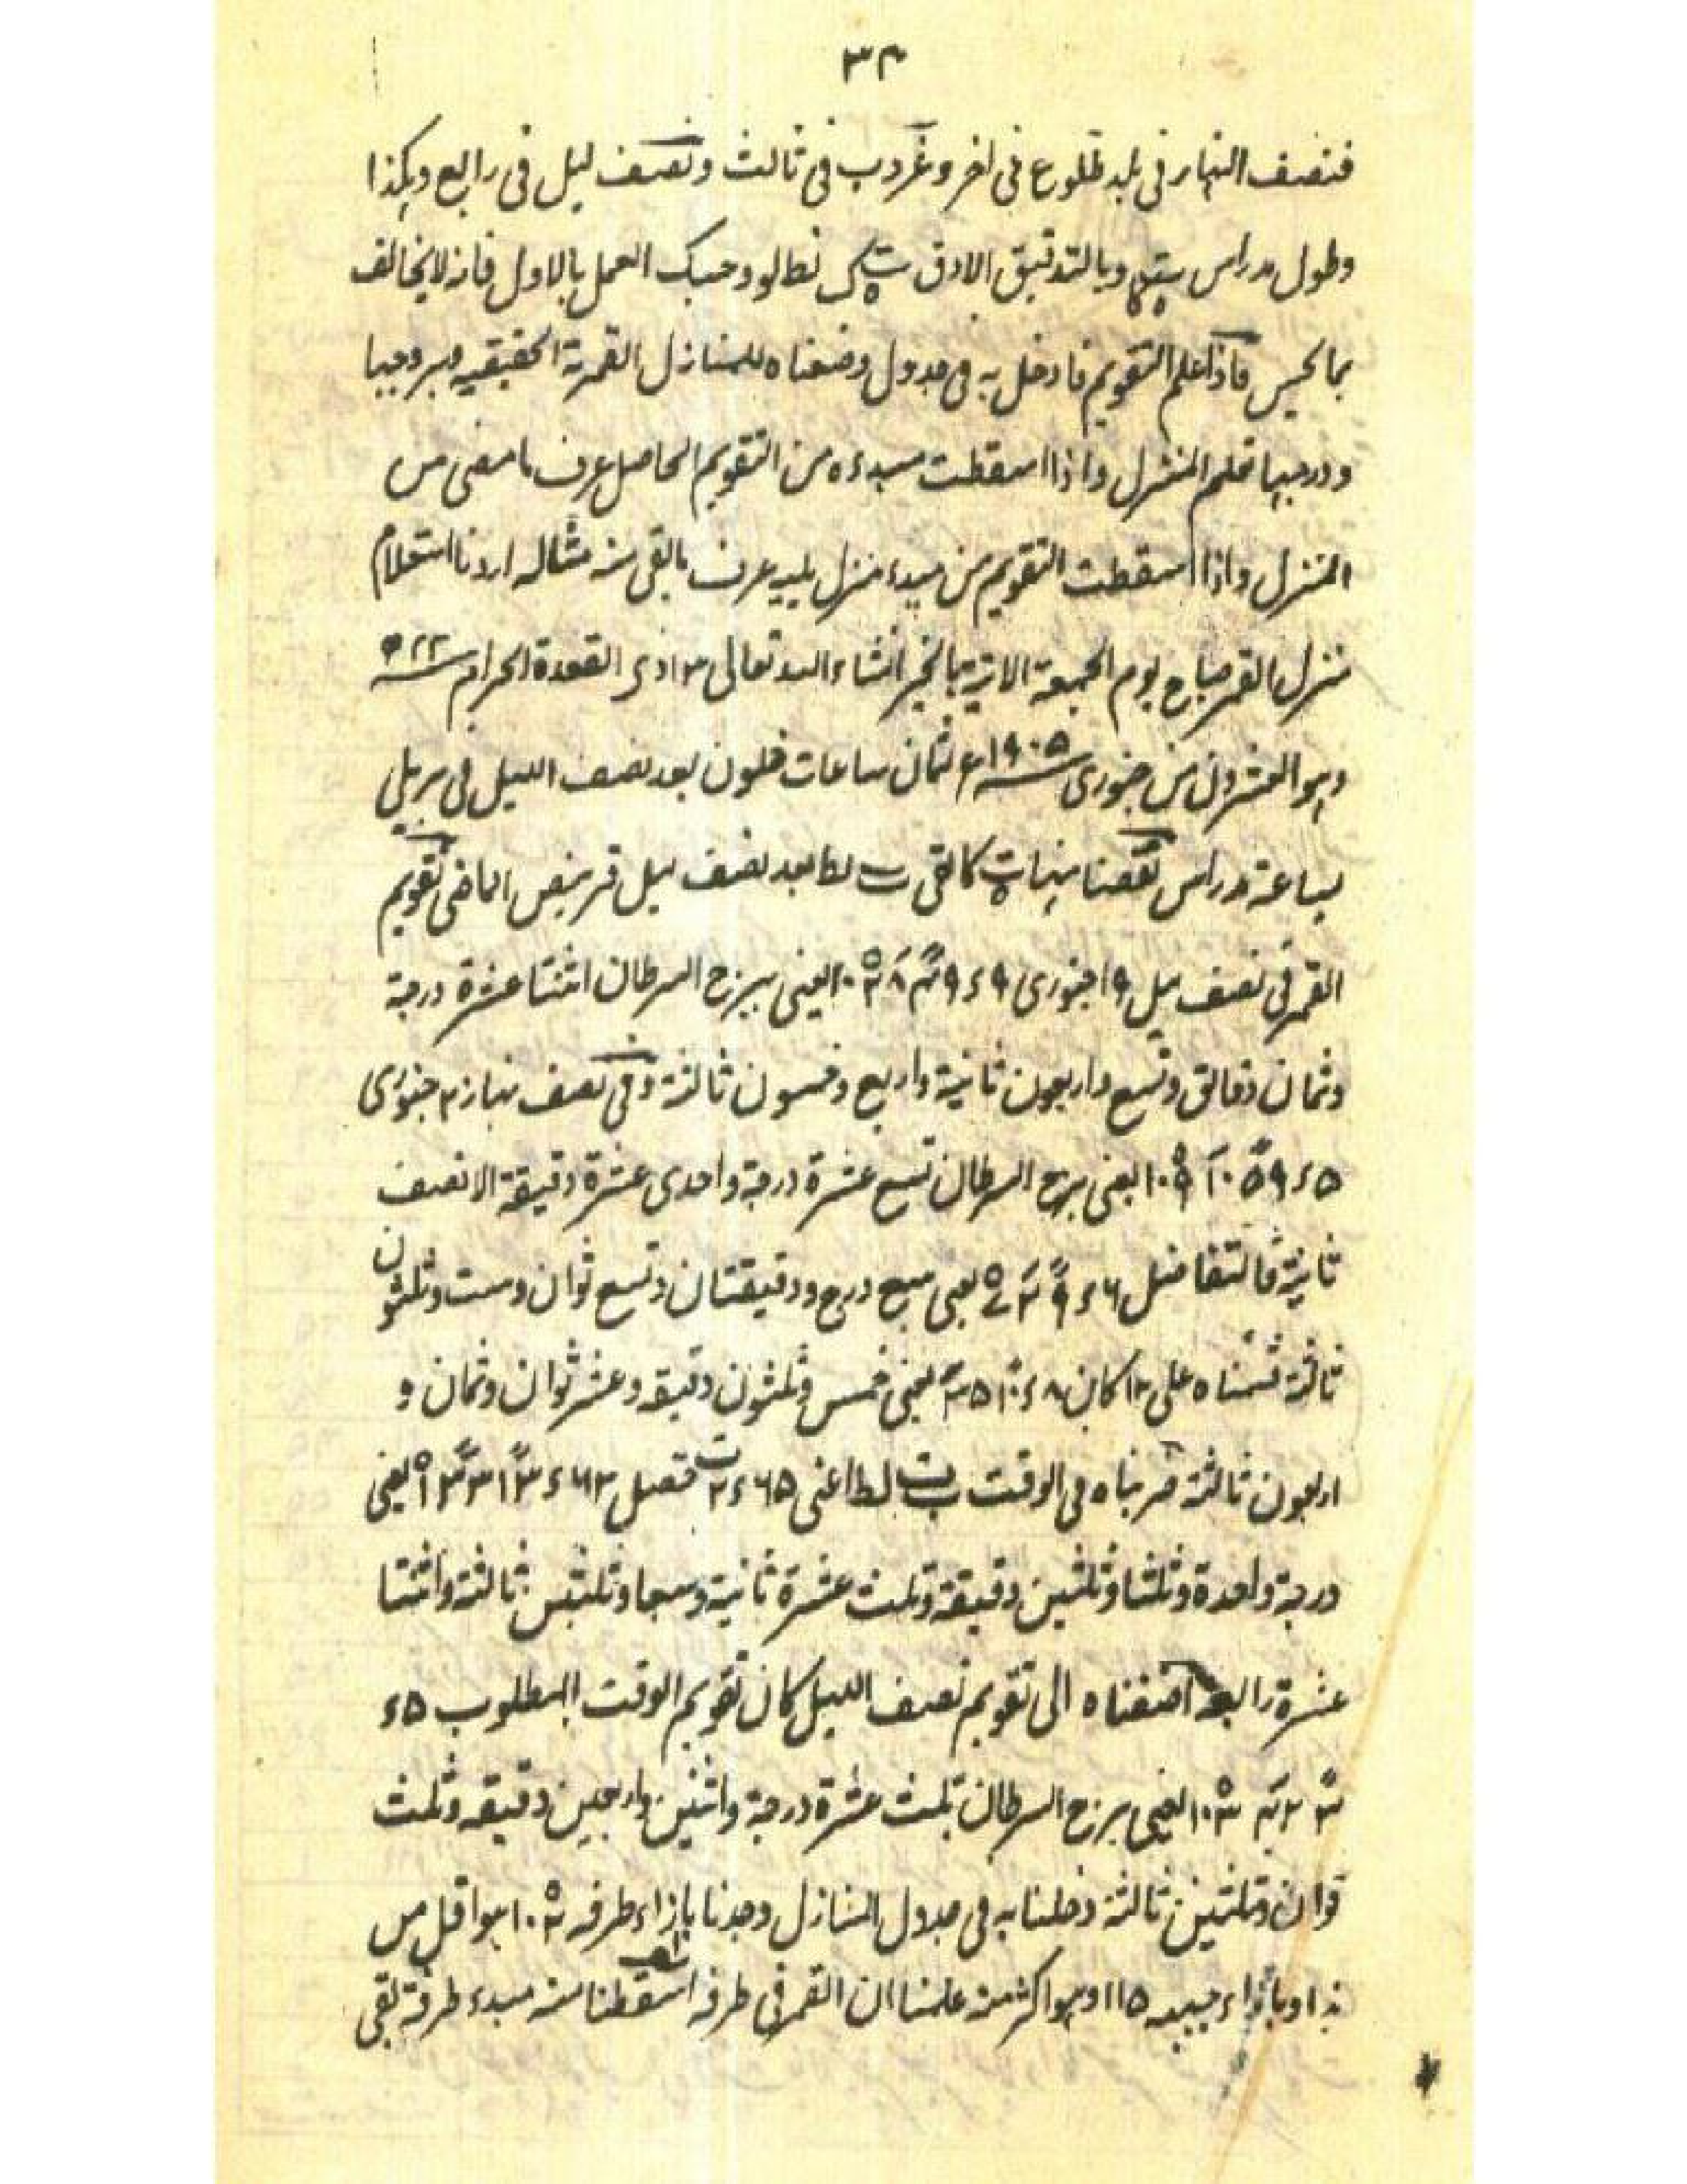 ٣٤
فنصف النهار فی بلد طلوع فی اخر وغروب فی ثالث ونصف لیل فی رابع وہکذا
وطول مدراس وبالتدقیق الادق لطالو وحسبک العمل بالاول فانہ لایخالف
بما یحس فاذا علم التقویم فادخل بہ فی جدول وضعناہ للمنازل القمریة الحقیقیہ ببروجہا
ودرجہا تعلم المنزل واذا اسقطت مبدءہ من التقویم الحاصل عرف ما مضی من
المنزل واذا اسقطت التقویم من مبدء منزل یلیہ عرف ما بقی منہ مثالہ اردنا استعلام
منزل القمر صباح یوم الجمعة الاتیة بالخیر انشاء اللہ تعالی ١٣ ذی القعدة الحرام سنہ ٢٢ ھ
وہو العشرون من جنوری سنہ ١٩٠٥ء لثمان ساعات خلون بعد نصف اللیل فی بریلی
بساعة مدراس نقصنا منہا کا بقی لط بعد نصف لیل قرینص الماضی تقویم
القمر فی نصف لیل ١٩ جنوری ٩ء٤٩ ٨ ١٠٢ یعنی ببرج السرطان اثنتا عشرة درجة
وثمان دقائق وتسع واربعون ثانیة واربع وخمسون ثالثة وفی نصف نہار ٢٠ جنوری
٥ء٥٩ ١٠ ١٠٩ یعنی برج السرطان تسع عشرة درجة واحدی عشرة دقیقة الا نصف
ثانیة فالتفاضل ٦ء٩ ٢ ٧ یعنی سبع درج ودقیقتان وتسع ثوان وست وثلثون
ثالثة قسمناہ علی ١٢ کان ٨ء١٠ ٣٥ یعنی خمس وثلثون دقیقہ وعشر ثوان وثمان و
اربعون ثالثة ضربناہ فی الوقت لط اعنی ٦٥ء٢ حصل ٦٢ء١٣ ٣٣ ١ یعنی
درجة واحدة وثلثا وثلثین دقیقة وثلث عشرة ثانیة وسبعا وثلثین ثالثة واثنتا
عشرة رابعة اضفناہ الی تقویم نصف اللیل کان تقویم الوقت المطلوب ٥ء
٣ ٤٢ ١٠٣ یعنی برج السرطان ثلث عشرة درجة واثنین واربعین دقیقہ وثلث
ثوان وثلثین ثالثة دخلنا بہ فی جدول المنازل وجدنا بازاء طرفہ ١٠٢ ہو اقل من
ہذا وبازاء جبہہ ١١٥ وہو اکثر منہ علمنا ان القمر فی طرفہ اسقطنا منہ مبدء طرفة بقی